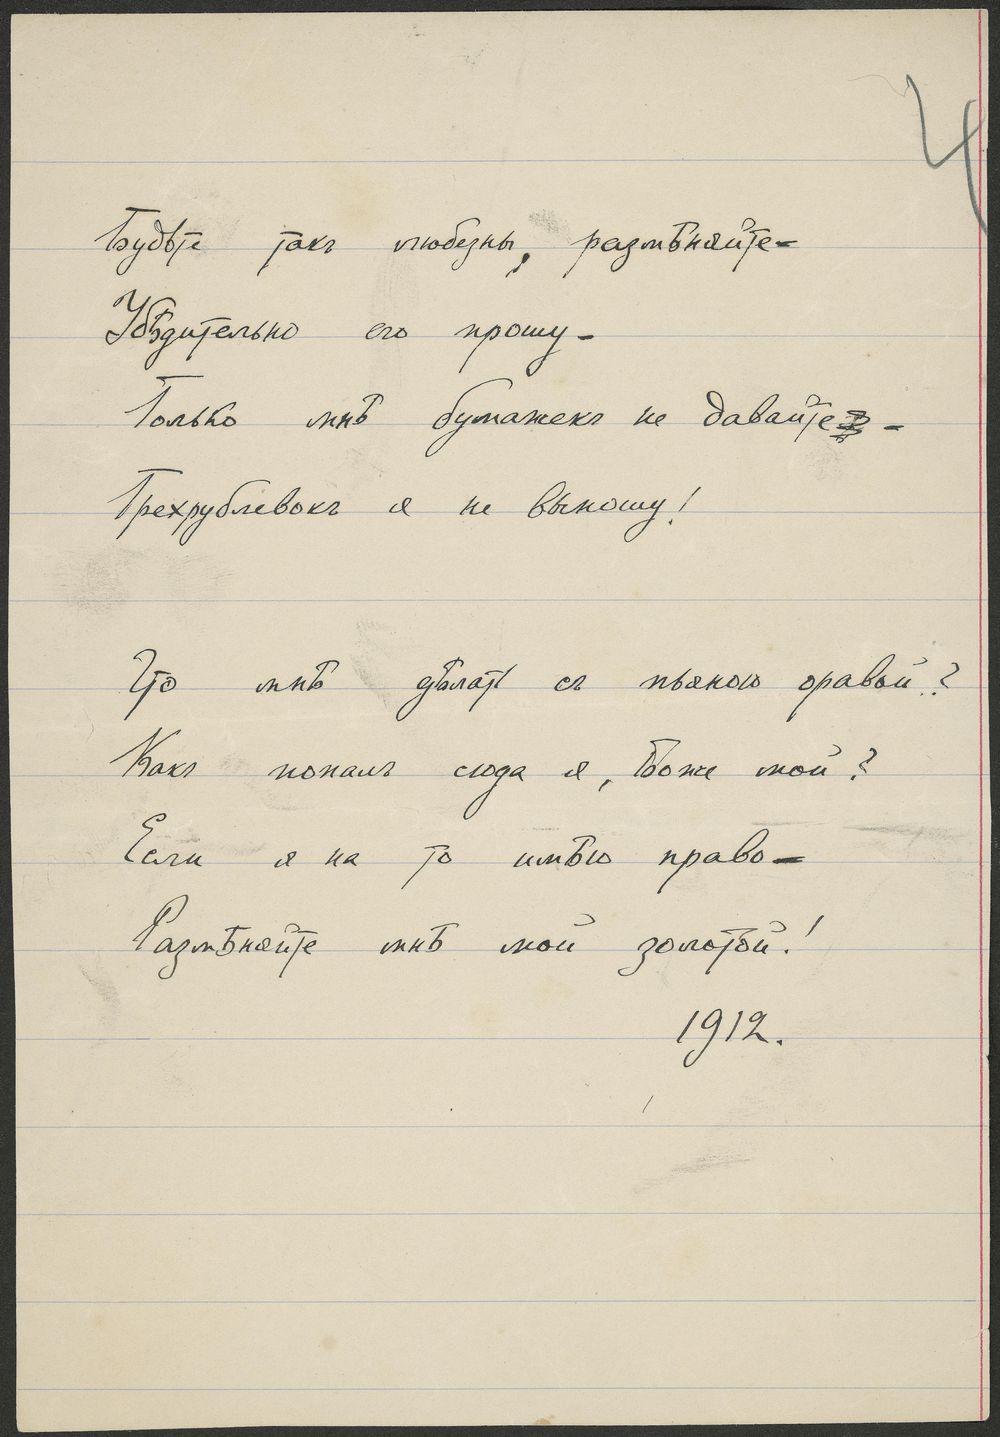 4
Будьте такъ любезны, размѣняйте —
Убѣдительно его прошу —
Только мнѣ бумажекъ не давайте —
Трехрублевокъ я не выношу!
Что мнѣ дѣлать съ пьяною оравой?
Какъ попалъ сюда я, Боже мой?
Если я на то имѣю право —
Размѣняйте мнѣ мой золотой!
1912.